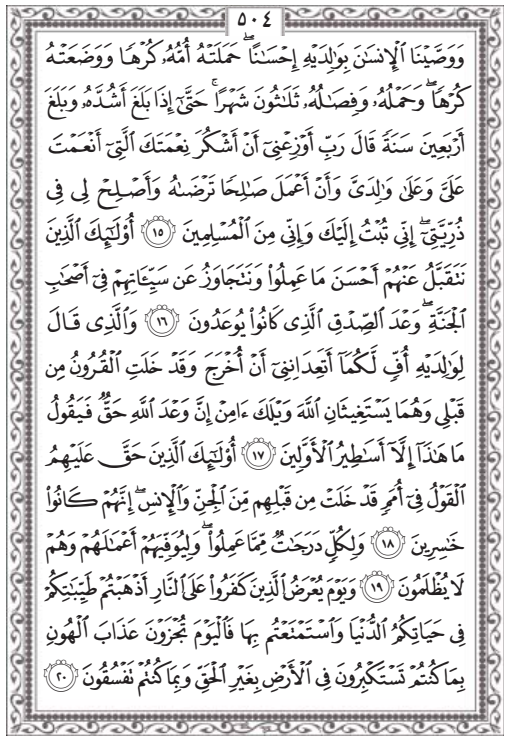 ٥٠٤
وَوَصَّيْنَا ٱلْإِنسَٰنَ بِوَٰلِدَيْهِ إِحْسَٰنًا ۖ حَمَلَتْهُ أُمُّهُۥ كُرْهًا وَوَضَعَتْهُ
كُرْهًا ۖ وَحَمْلُهُۥ وَفِصَٰلُهُۥ ثَلَٰثُونَ شَهْرًا ۚ حَتَّىٰٓ إِذَا بَلَغَ أَشُدَّهُۥ وَبَلَغَ
أَرْبَعِينَ سَنَةً قَالَ رَبِّ أَوْزِعْنِىٓ أَنْ أَشْكُرَ نِعْمَتَكَ ٱلَّتِىٓ أَنْعَمْتَ
عَلَىَّ وَعَلَىٰ وَٰلِدَىَّ وَأَنْ أَعْمَلَ صَٰلِحًا تَرْضَىٰهُ وَأَصْلِحْ لِى فِى
ذُرِّيَّتِىٓ ۖ إِنِّى تُبْتُ إِلَيْكَ وَإِنِّى مِنَ ٱلْمُسْلِمِينَ ١٥ أُو۟لَٰٓئِكَ ٱلَّذِينَ
نَتَقَبَّلُ عَنْهُمْ أَحْسَنَ مَا عَمِلُوا۟ وَنَتَجَاوَزُ عَن سَيِّـَٔاتِهِمْ فِىٓ أَصْحَٰبِ
ٱلْجَنَّةِ ۖ وَعْدَ ٱلصِّدْقِ ٱلَّذِى كَانُوا۟ يُوعَدُونَ ١٦ وَٱلَّذِى قَالَ
لِوَٰلِدَيْهِ أُفٍّ لَّكُمَآ أَتَعِدَانِنِىٓ أَنْ أُخْرَجَ وَقَدْ خَلَتِ ٱلْقُرُونُ مِن
قَبْلِى وَهُمَا يَسْتَغِيثَانِ ٱللَّهَ وَيْلَكَ ءَامِنْ إِنَّ وَعْدَ ٱللَّهِ حَقٌّ فَيَقُولُ
مَا هَٰذَآ إِلَّآ أَسَٰطِيرُ ٱلْأَوَّلِينَ ١٧ أُو۟لَٰٓئِكَ ٱلَّذِينَ حَقَّ عَلَيْهِمُ
ٱلْقَوْلُ فِىٓ أُمَمٍ قَدْ خَلَتْ مِن قَبْلِهِم مِّنَ ٱلْجِنِّ وَٱلْإِنسِ ۖ إِنَّهُمْ كَانُوا۟
خَٰسِرِينَ ١٨ وَلِكُلٍّ دَرَجَٰتٌ مِّمَّا عَمِلُوا۟ ۖ وَلِيُوَفِّيَهُمْ أَعْمَٰلَهُمْ وَهُمْ
لَا يُظْلَمُونَ ١٩ وَيَوْمَ يُعْرَضُ ٱلَّذِينَ كَفَرُوا۟ عَلَى ٱلنَّارِ أَذْهَبْتُمْ طَيِّبَٰتِكُمْ
فِى حَيَاتِكُمُ ٱلدُّنْيَا وَٱسْتَمْتَعْتُم بِهَا فَٱلْيَوْمَ تُجْزَوْنَ عَذَابَ ٱلْهُونِ
بِمَا كُنتُمْ تَسْتَكْبِرُونَ فِى ٱلْأَرْضِ بِغَيْرِ ٱلْحَقِّ وَبِمَا كُنتُمْ تَفْسُقُونَ ٢٠